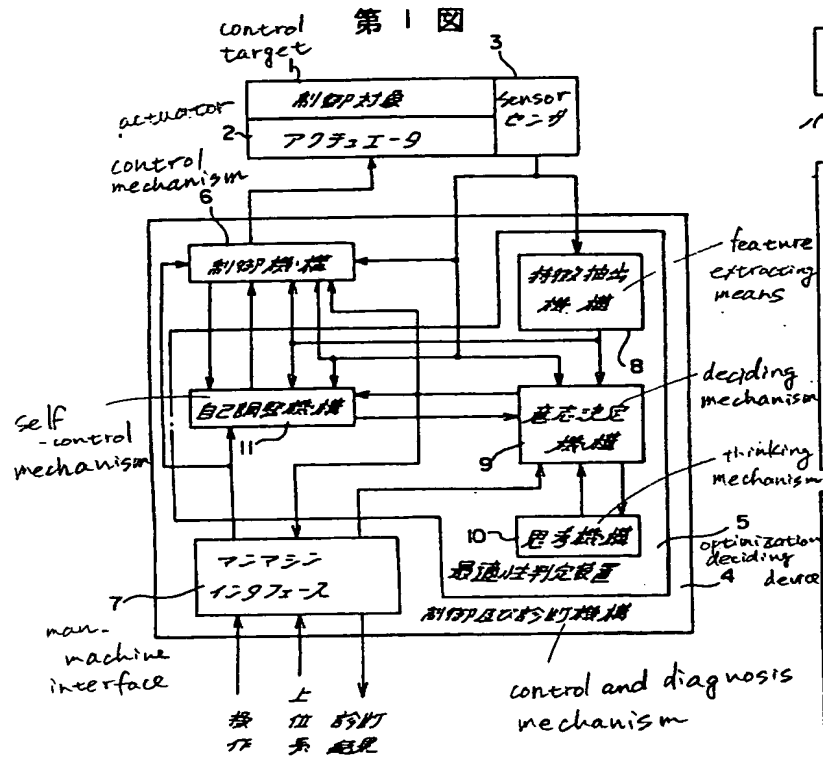 第1図
control
target
1
3
制御対象
sensor
センサ
actuator
2
アクチュエータ
control
mechanism
6
制御機構
特徴抽出
機構
feature
extracting
means
8
自己調整機構
11
self
-control
mechanism
意志決定
機構
9
deciding
mechanism
thinking
mechanism
10
思考機構
5
最適性判定装置
optimization
deciding
device
4
マンマシン
インタフェース
7
制御及び診断機構
man-
machine
interface
control and diagnosis
mechanism
操作
上位系
診断結果